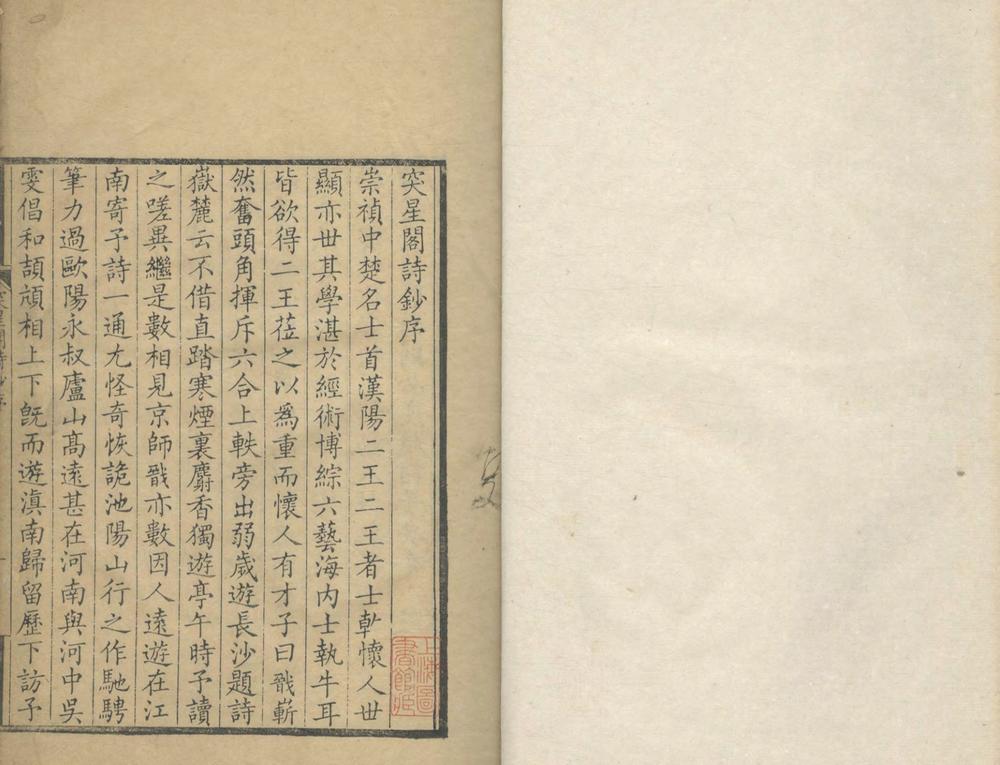 突星閣詩鈔序
崇禎中楚名士首漢陽二王二王者士乾懷人世
顯亦世其學湛於經術博綜六藝海内士執牛耳
皆欲得二王莅之以為重而懷人有才子曰戩嶄
然奮頭角揮斥六合上軼旁出弱歲遊長沙題詩
嶽麓云不借直踏寒煙裏麝香獨遊亭午時予讀
之嗟異繼是數相見京師戩亦數因人遠遊在江
南寄予詩一通尤怪奇恢詭池陽山行之作馳騁
筆力過歐陽永叔廬山高遠甚在河南與河中吳
雯倡和頡頏相上下既而遊滇南歸留歷下訪予
上海圖
書館藏